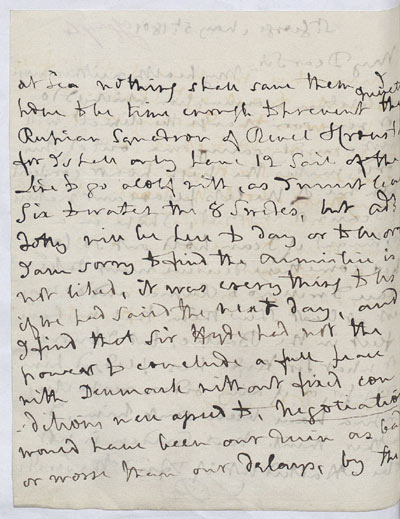 at Sea nothing shall save them I
hope to be time enough to prevent the quiet
Russian Squadron of Revel
for I shall only have 12 Sail of the
Line to go aloft with, as I must lea
Six to watch the 8 Swedes, but adl
Totty will be here to day or tomor
I am sorry to find the Armistice is
not liked, it was every thing to us
if we had saild the next day, and
I find that Sir Hyde had not the
power to conclude a full peace
with Denmark without fixed con
ditions were agreed to. Negotiation
would have been our ruin as bad
or worse than our delays, by the